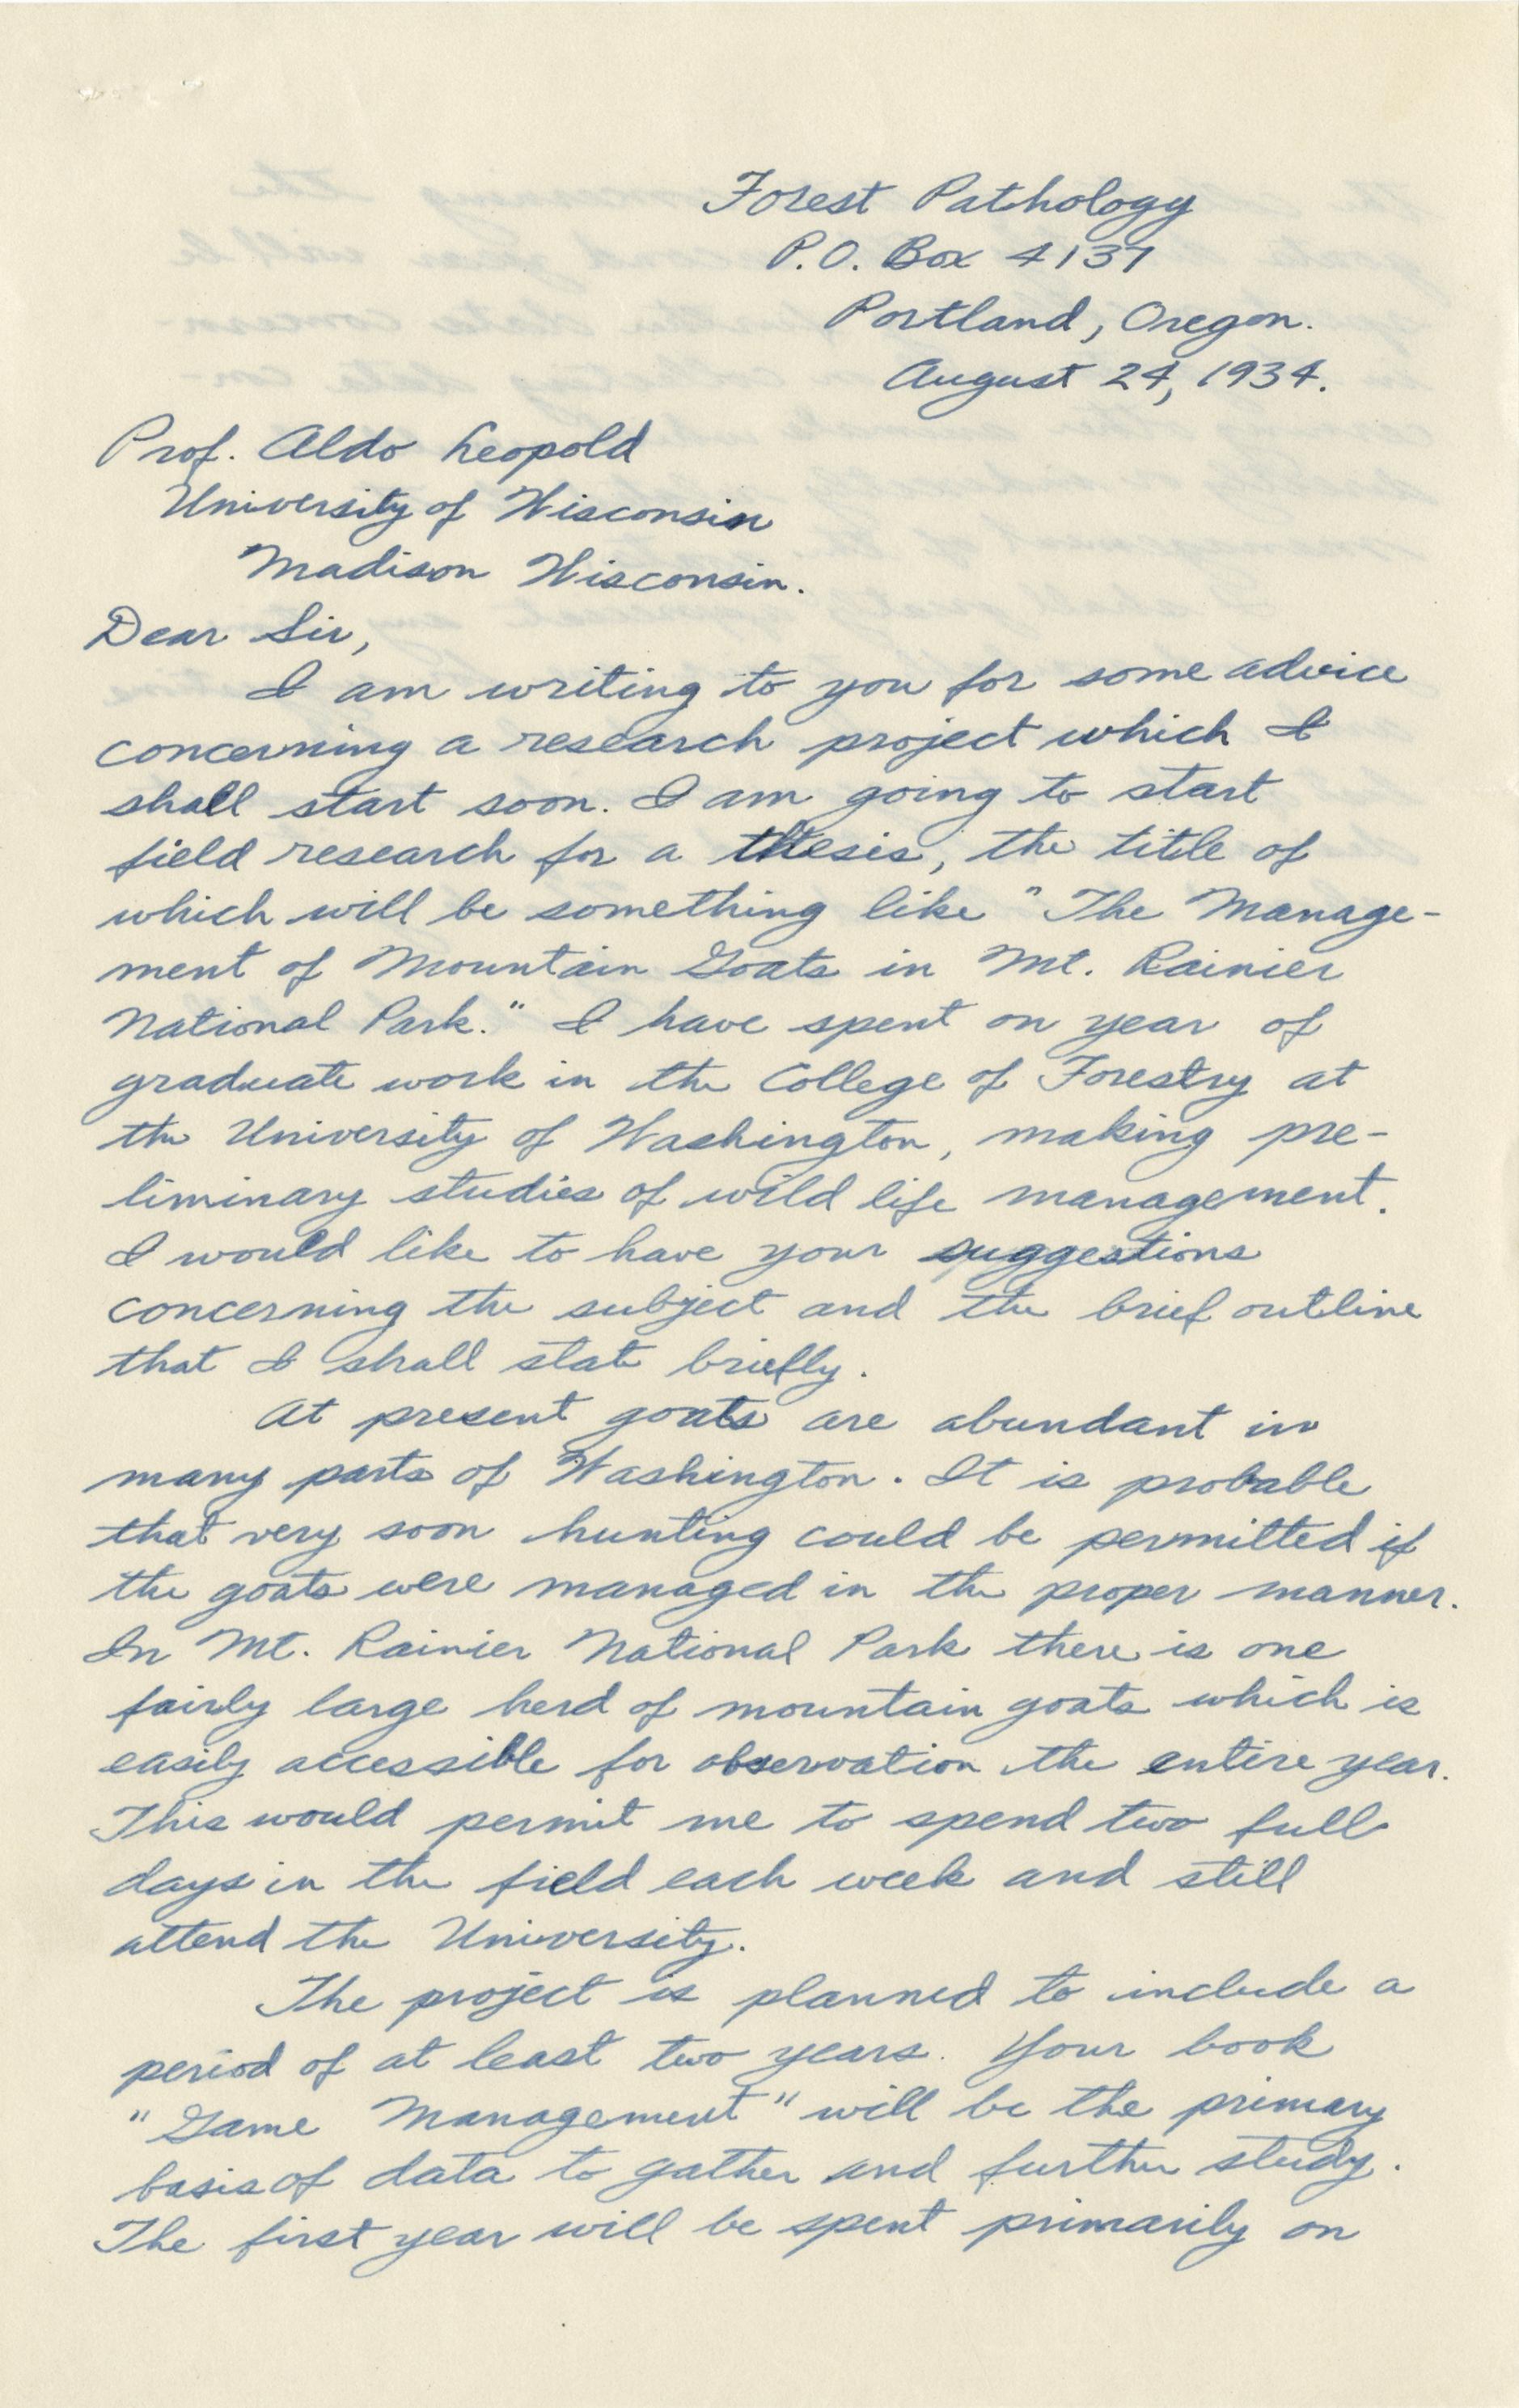 Forest Pathology
P.O. Box 4137
Portland, Oregon.
August 24, 1934.
Prof. Aldo Leopold
University of Wisconsin
Madison Wisconsin.
Dear Sir,
I am writing to you for some advice
concerning a research project which I
shall start soon. I am going to start
field research for a thesis, the title of
which will be something like "The Manage-
ment of Mountain Goats in Mt. Rainier
National Park." I have spent on year of
graduate work in the College of Forestry at
the University of Washington, making pre-
liminary studies of wild life management.
I would like to have your suggestions
concerning the subject and the brief outline
that I shall state briefly.
At present goats are abundant in
many parts of Washington. It is probable
that very soon hunting could be permitted if
the goats were managed in the proper manner.
In Mt. Rainier National Park there is one
fairly large herd of mountain goats which is
easily accessible for observation the entire year.
This would permit me to spend two full
days in the field each week and still
attend the University.
The project is planned to include a
period of at least two years. Your book
"Game Management" will be the primary
basis of data to gather and further study.
The first year will be spent primarily on